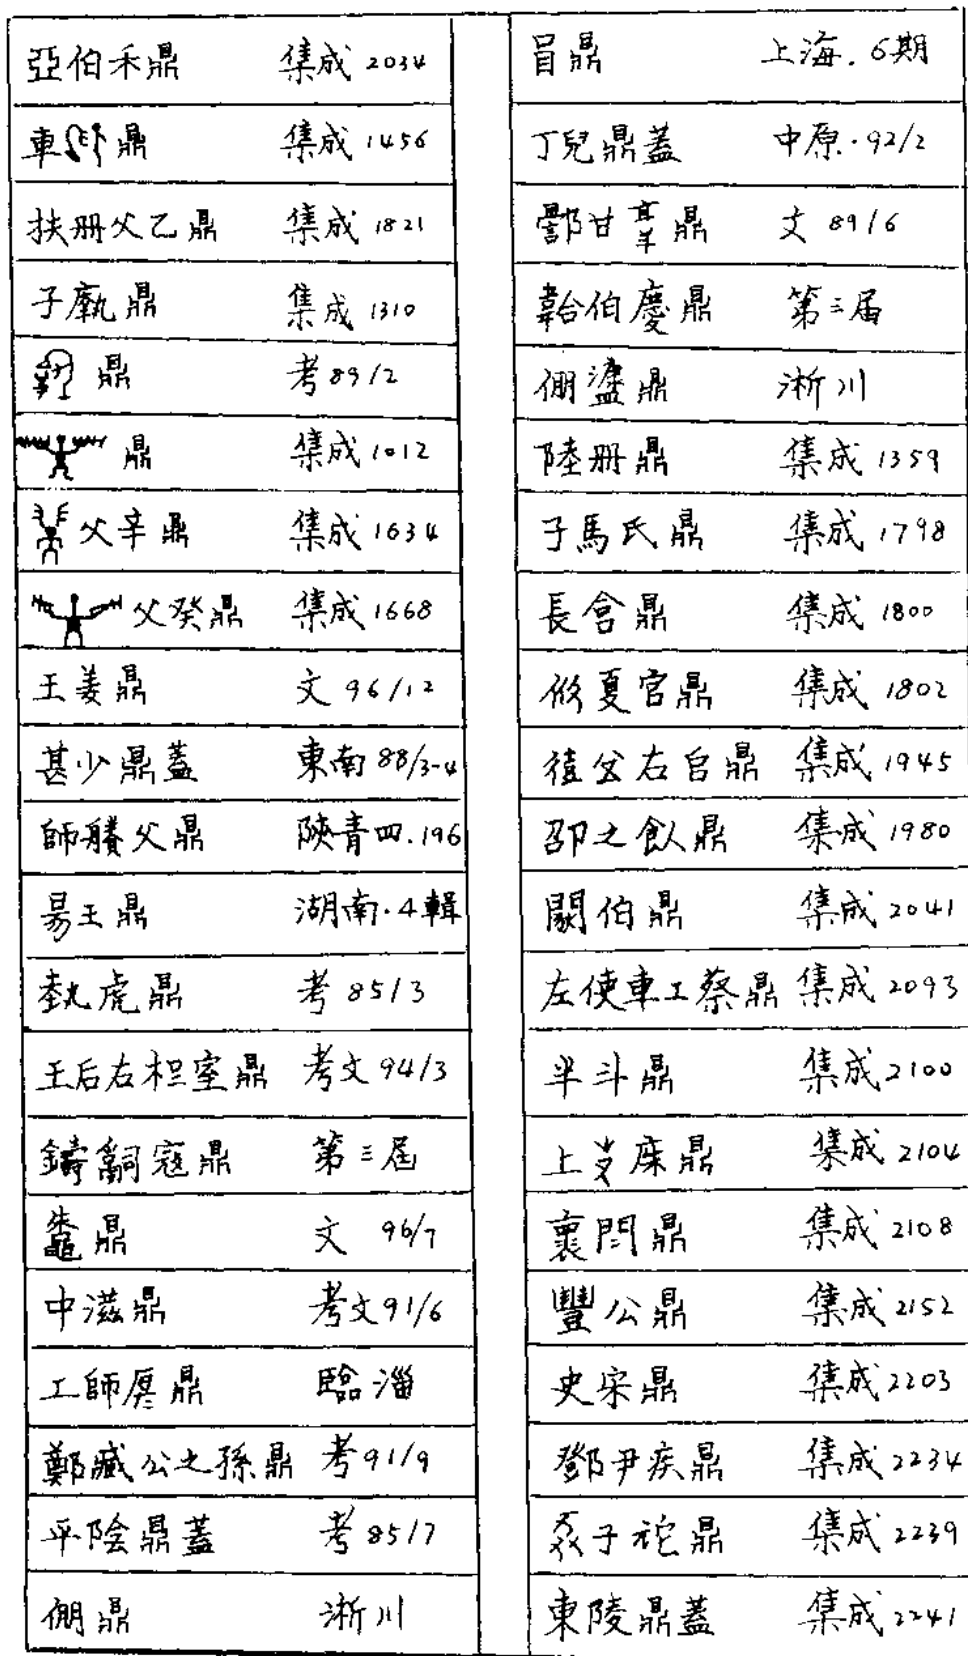 亞伯禾鼎 集成 2034
車 鼎 集成 1456
扶冊父乙鼎 集成 1821
子𢊁鼎 集成 1310
鼎 考 89/2
鼎 集成 1012
父辛鼎 集成 1634
父癸鼎 集成 1668
王姜鼎 文 96/12
甚少鼎蓋 東南 88/3-4
師 父鼎 陝青四.196
昜王鼎 湖南.4輯
虎鼎 考 85/3
王后右柤室鼎 考文 94/3
鑄嗣寇鼎 第三屆
鼄鼎 文 96/7
中滋鼎 考文91/6
工師厚鼎 臨淄
鄭臧公之孫鼎 考91/9
平陰鼎蓋 考 85/7
倗鼎 淅川
冒鼎 上海.6期
丁兒鼎蓋 中原.92/2
甘 鼎 文 89/6
伯慶鼎 第三屆
倗 鼎 淅川
陸冊鼎 集成 1359
子馬氏鼎 集成 1798
長 鼎 集成 1800
脩夏官鼎 集成 1802
右自鼎 集成 1945
卲之飤鼎 集成 1980
伯鼎 集成 2041
左使車工蔡鼎 集成 2093
半斗鼎 集成 2100
上 鼎 集成 2104
襄 鼎 集成 2108
豐公鼎 集成 2152
史宋鼎 集成 2203
鄧尹疾鼎 集成 2234
子 鼎 集成 2239
東陵鼎蓋 集成 2241